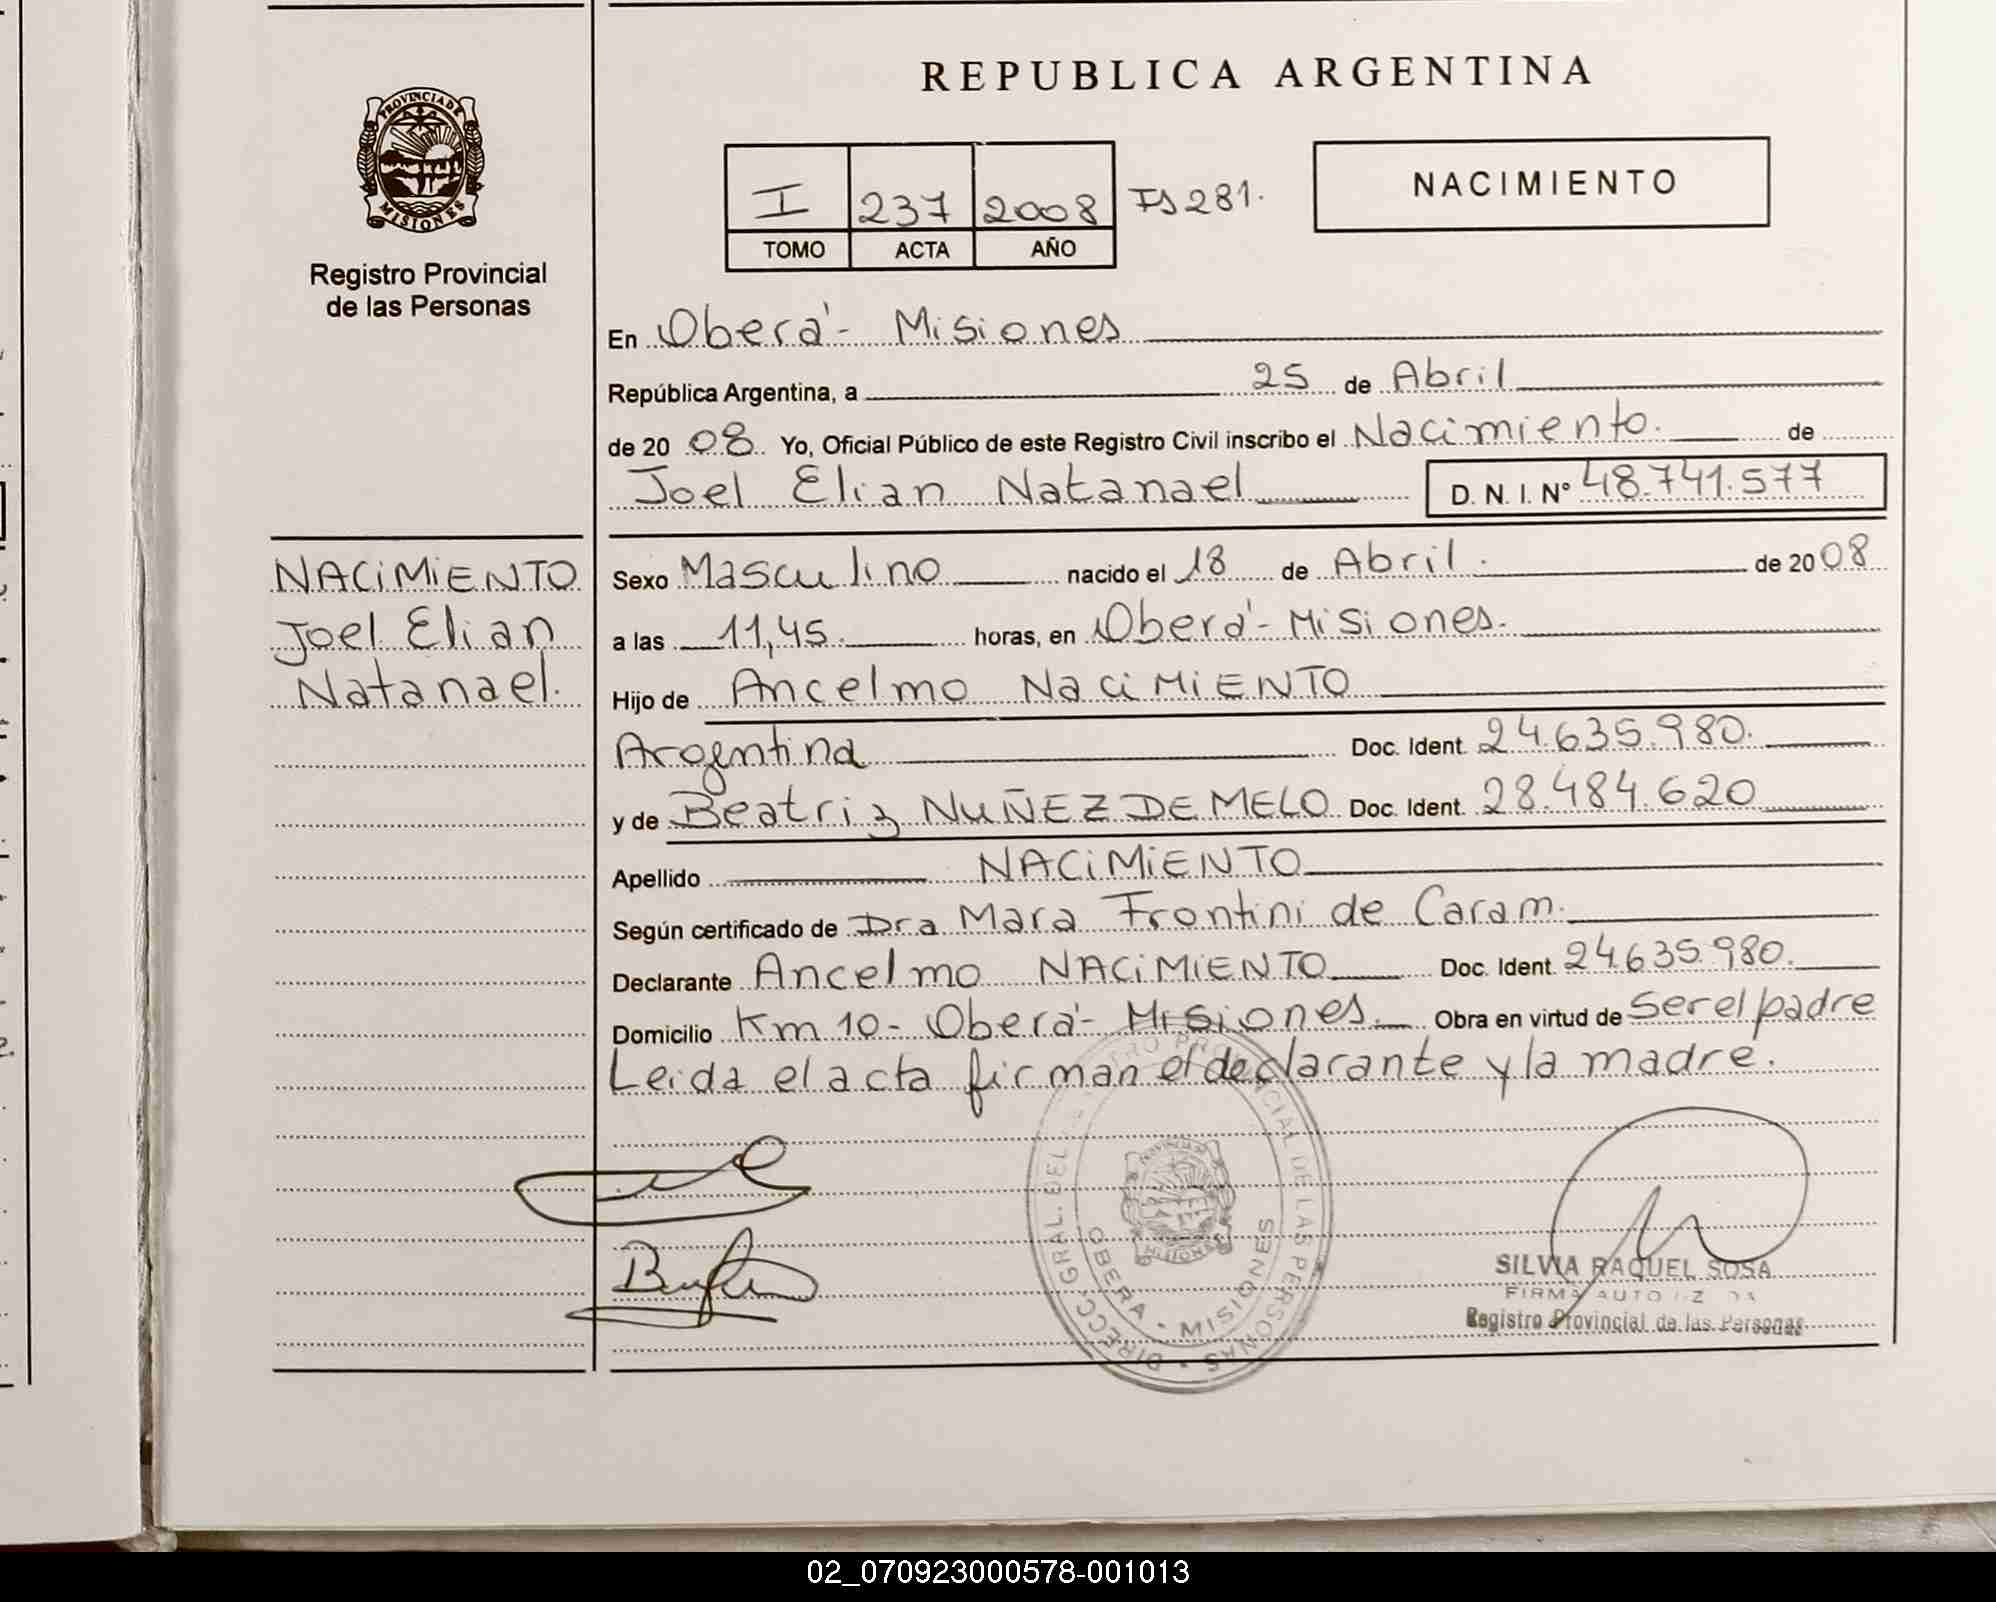 REPUBLICA ARGENTINA
PROVINCIA DE MISIONES
Registro Provincial
de las Personas
I 237 2008 Fs 281.
TOMO ACTA AÑO
NACIMIENTO
En Oberá - Misiones
República Argentina, a 25 de Abril
de 20 08 Yo, Oficial Público de este Registro Civil inscribo el Nacimiento. de
Joel Elian Natanael D. N. I. Nº 48.741.577
NACIMIENTO
Joel Elian
Natanael.
Sexo Masculino nacido el 18 de Abril. de 20 08
a las 11,45. horas, en Oberá - Misiones.
Hijo de Ancelmo NaciMIENTO
Argentina Doc. Ident. 24.635.980.
y de Beatriz NUÑEZ DE MELO Doc. Ident. 28.484.620
Apellido NACIMIENTO
Según certificado de Dra Mara Frontini de Caram.
Declarante Ancelmo NACIMIENTO Doc. Ident. 24.635.980.
Domicilio Km 10 - Oberá - Misiones. Obra en virtud de Ser el padre
Leida el acta firman el declarante y la madre.
DIRECC. GRAL. DEL REGISTRO PROVINCIAL DE LAS PERSONAS
OBERA - MISIONES
SILVIA RAQUEL SOSA
FIRMA AUTORIZADA
Registro Provincial de las Personas
02_070923000578-001013